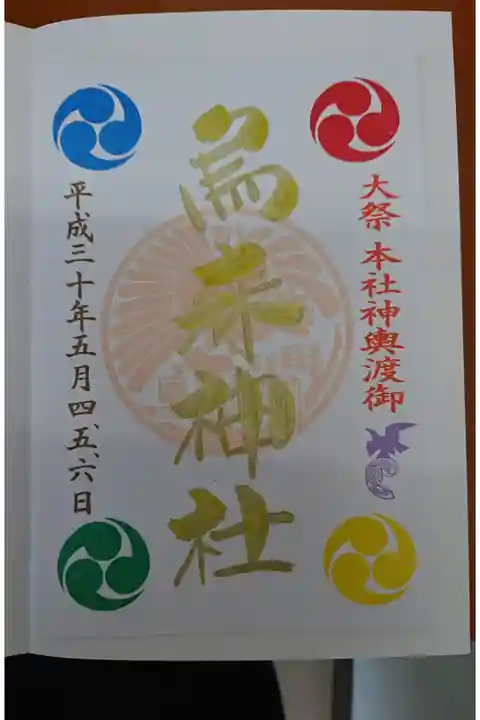 大祭 本社神輿渡御
烏森神社
平成三十年五月四、五、六日